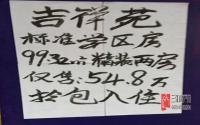 吉祥苑
标准学区房
99.32㎡精装两房
仅售:54.8万
拎包入住